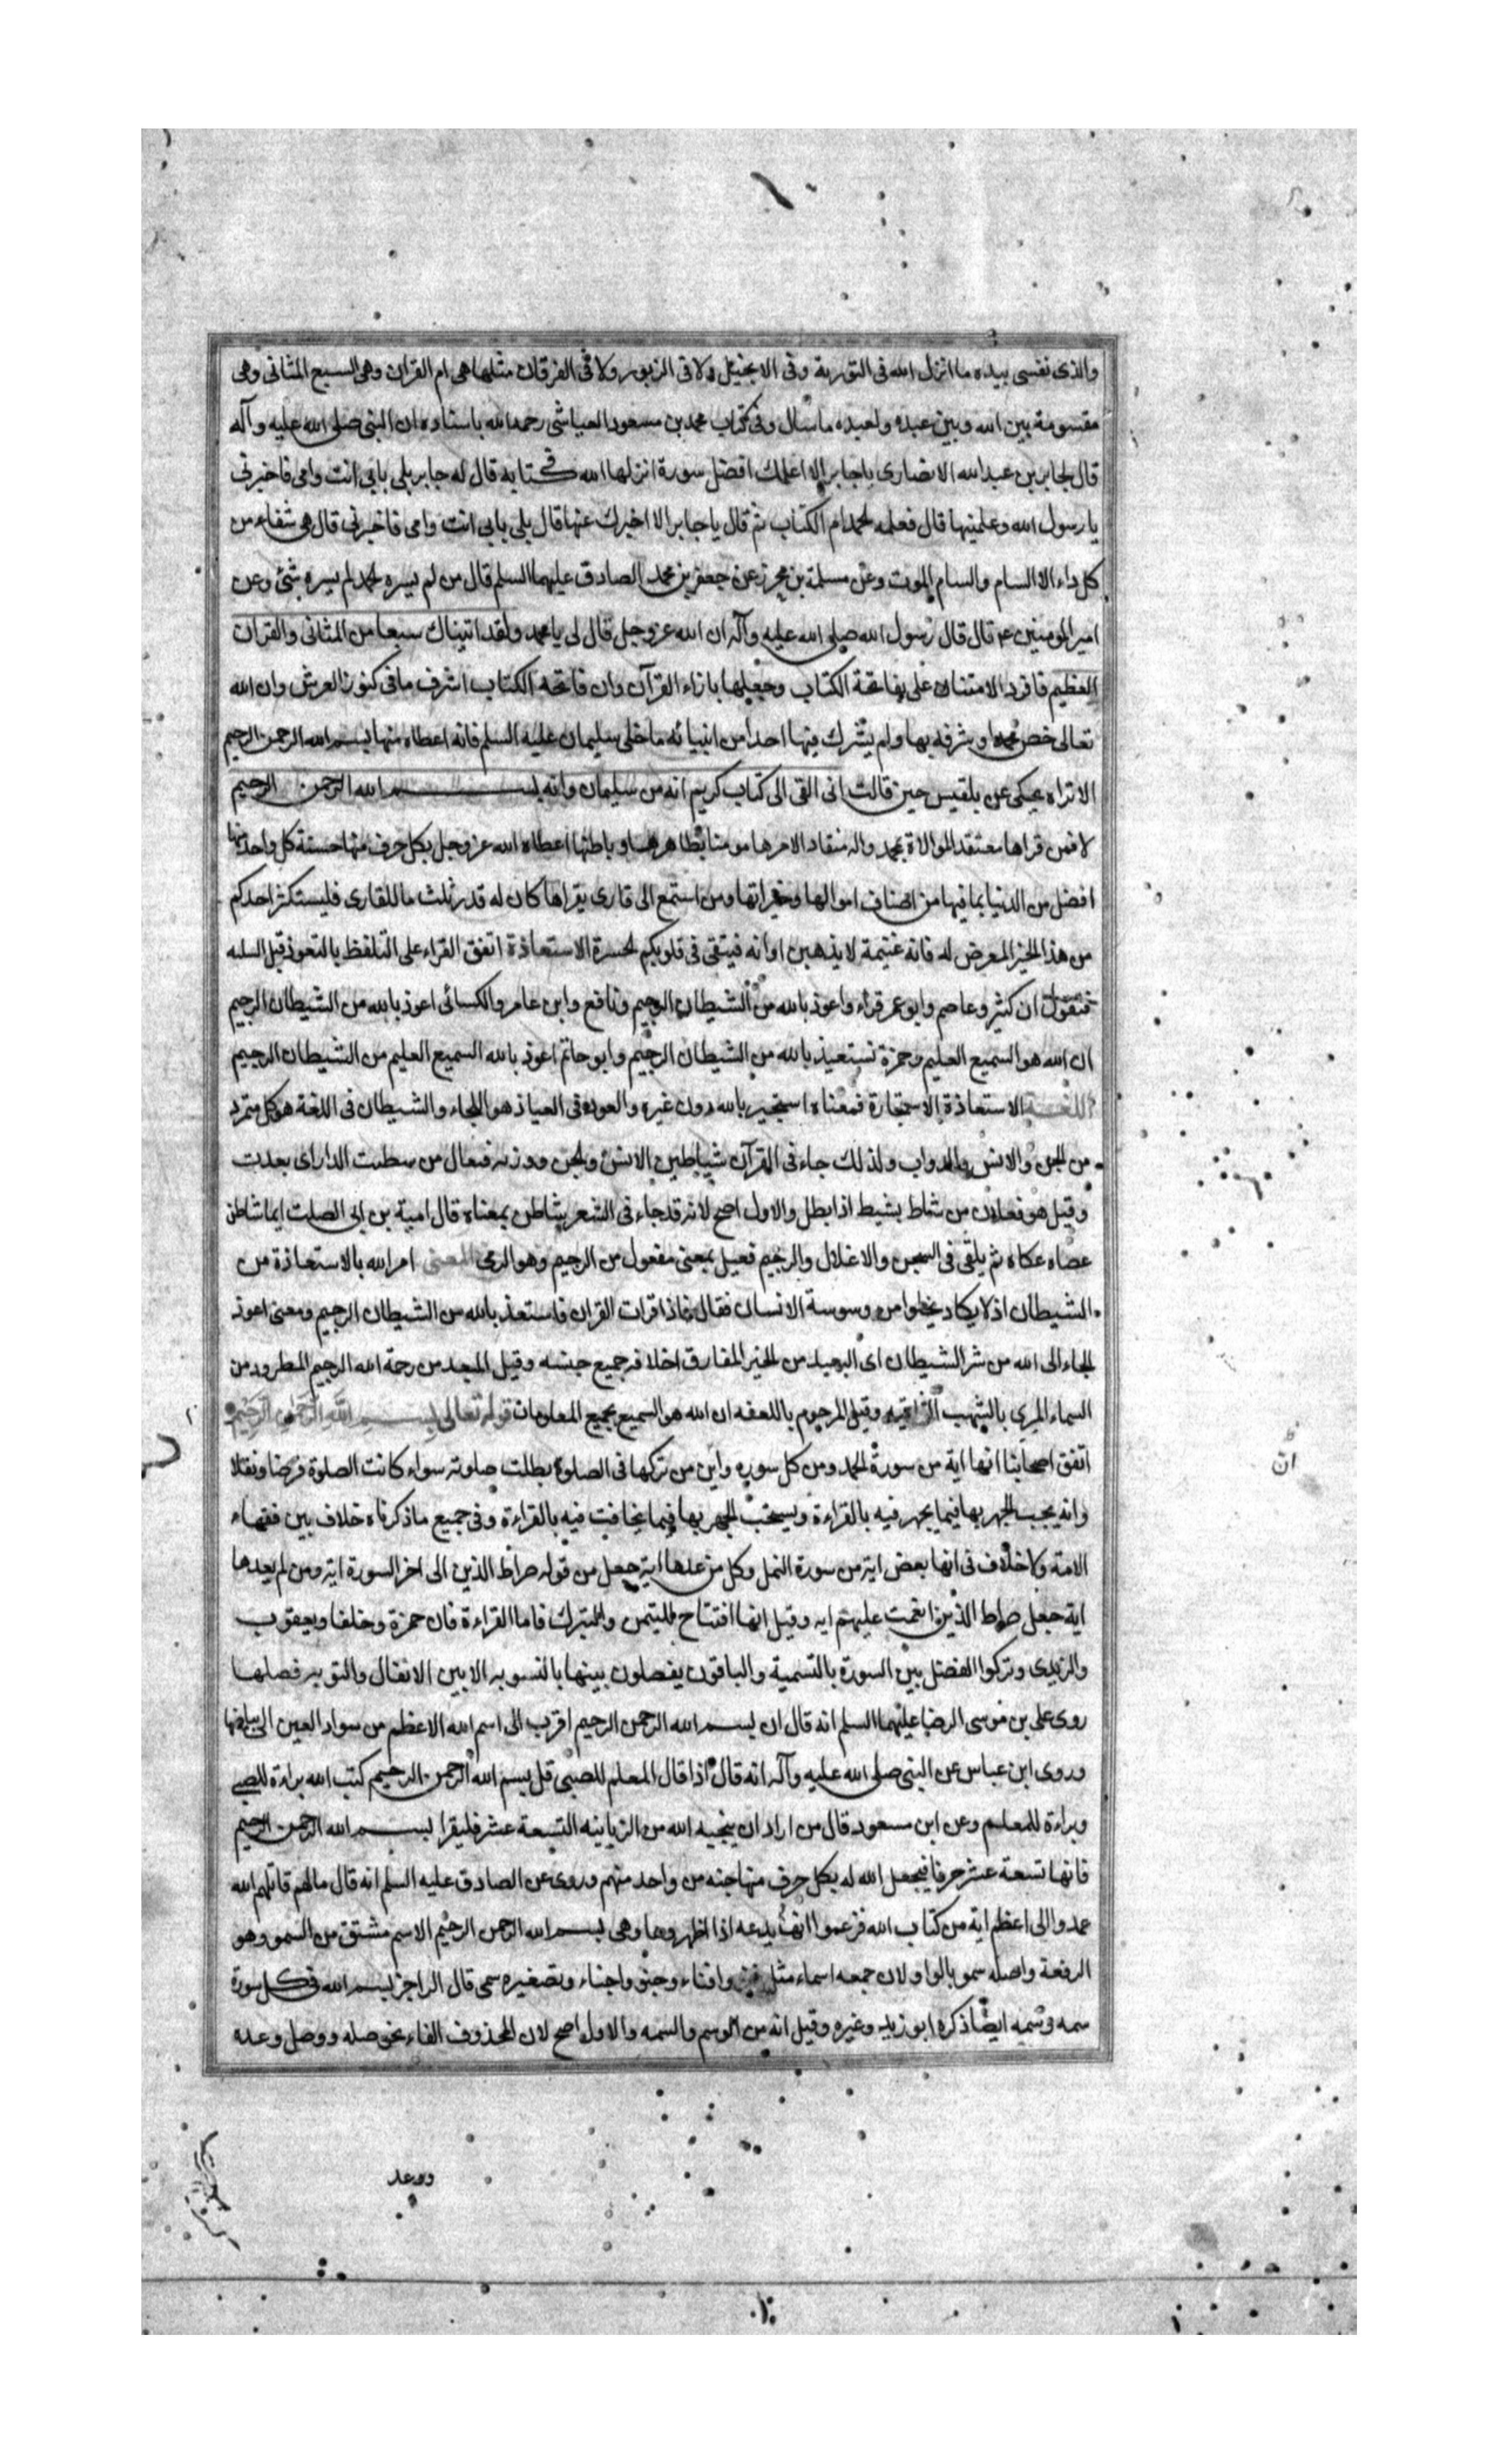 والذى نفسى بيده ما انزل الله فى التورية وفى الانجيل ولا فى الزبور ولا فى الفرقان مثلها هى ام القران وهى السبع المثانى وهى
مقسومة بين الله وبين عبده ولعبده ما سال وفى كتاب محمد بن مسعود العياشى رحمه الله باسناده ان النبى صلى الله عليه وآله
قال لجابر بن عبد الله الانصارى يا جابر الا اعلمك افضل سورة انزلها الله فى كتابه قال له جابر بلى بابى انت وامى فاخبرنى
يا رسول الله وعلمنيها قال فعلمه الحمد ام الكتاب ثم قال يا جابر الا اخبرك عنها قال بلى بابى انت وامى فاخبرنى قال هى شفاء من
كل داء الا السام والسام الموت وعن مسلمة بن محرز عن جعفر بن محمد الصادق عليهما السلم قال من لم يبره الحمد لم يبره شئ وعن
امير المومنين ع قال قال رسول الله صلى الله عليه وآله ان الله عز وجل قال لى يا محمد ولقد اتيناك سبعا من المثانى والقران
العظيم فافرد الامتنان على بفاتحة الكتاب وجعلها بازاء القرآن وان فاتحه الكتاب اشرف ما فى كنوز العرش وان الله
تعالى خص محمدا وشرفه بها ولم يشرك فيها احدا من انبيائه ما خلى سليمان عليه السلم فانه اعطاه منها بسم الله الرحمن الرحيم
الا تراه يحكى عن بلقيس حين قالت انى القى الى كتاب كريم انه من سليمان وانه بسم الله الرحمن الرحيم
لا فمن قراها معتقد الموالاة بمحمد واله منقاد الامرها مومنا بظاهرها وباطنها اعطاه الله عز وجل بكل حرف منها حسنة كل واحد منها
افضل من الدنيا بما فيها من اصناف اموالها وخيراتها ومن استمع الى قارى يقراها كان له قدر ثلث ما للقارى فليستكثر احدكم
من هذا الخير المعرض له فانه غنيمة لا يذهبن اوانه فيبقى فى قلوبكم الحسرة الاستعاذة اتفق القراء على التلفظ بالتعوذ قبل السله
فيقول ان كثير وعاصم وابو عمر قراء واعوذ بالله من الشيطان الرجيم ونافع وابن عامر والكسائى اعوذ بالله من الشيطان الرجيم
ان الله هو السميع العليم وحمزة نستعيذ بالله من الشيطان الرجيم وابو حاتم اعوذ بالله السميع العليم من الشيطان الرجيم
اللغة الاستعاذة الاستجارة فمعناه استجير بالله دون غيره والعوذ فى العياذ هو اللجاء والشيطان فى اللغة هو كل متمرد
من الجن والانس والدواب ولذلك جاء فى القرآن شياطين الانس والجن ووزنه فيعال من شطنت الدار اى بعدت
وقيل هو فعلان من شاط يشيط اذا بطل والاول اصح لانه قد جاء فى الشعر شاطن بمعناه قال امية بن ابى الصلت ايما شاطن
عصاه عكاه ثم يلقى فى السجن والاغلال والرجيم فعيل بمعنى مفعول من الرجيم وهو الرمى المعنى امر الله بالاستعاذة من
الشيطان اذ لا يكاد يخلوا من وسوسة الانسان فقال فاذا قرات القران فاستعذ بالله من الشيطان الرجيم ومعنى اعوذ
الجاء الى الله من شر الشيطان اى البعيد من الخير المفارق اخلافه جميع جنسه وقيل المبعد من رحمة الله الرجيم المطرود من
السماء المرمى بالشهب الثاقبه وقيل المرجوم باللعنه ان الله هو السميع بجميع المعلومات قوله تعالى بسم الله الرحمن الرحيم
اتفق اصحابنا انها اية من سورة الحمد ومن كل سوره وان من تركها فى الصلوة بطلت صلوته سواء كانت الصلوة فرضا ونفلا
وانه يجب الجهر بها فيما يجهر فيه بالقراءة ويستحب الجهر بها فيما يخافت فيه بالقراءة وفى جميع ما ذكرناه خلاف بين فقهاء
الامة ولا خلاف فى انها بعض اية من سورة النمل وكل من عدها اية جعل من قوله صراط الذين الى اخر السورة اية ومن لم يعدها
اية جعل صراط الذين انعمت عليهم ايه وقيل انها افتتاح للتيمن والتبرك فاما القراءة فان حمزة وخلفا ويعقوب
واليزيدى وتركوا الفصل بين السورة بالتسمية والباقون يفصلون بينها بالتسويه الا بين الانفال والتوبه فصلها
روى على بن موسى الرضا عليهما السلم انه قال ان بسم الله الرحمن الرحيم اقرب الى اسم الله الاعظم من سواد العين الى بياضها
وروى ابن عباس عن النبى صلى الله عليه وآله انه قال اذا قال المعلم للصبى قل بسم الله الرحمن الرحيم كتب الله براءة للصبى
وبراءة للمعلم وعن ابن مسعود قال من اراد ان ينجيه الله من الزبانيه التسعة عشر فليقرا بسم الله الرحمن الرحيم
فانها تسعة عشر حرفا فيجعل الله له بكل حرف منها جنه من واحد منهم وروى عن الصادق عليه السلم انه قال ما لهم قاتلهم الله
عمدوا الى اعظم اية من كتاب الله فزعموا انها بدعه اذا اظهروها وهى بسم الله الرحمن الرحيم الاسم مشتق من السمو وهو
الرفعة واصله سمو بالواو لان جمعه اسماء مثل واقناء وجنو واجناء وتصغيره سمى قال الراجز بسم الله فى كل سورة
سمه وسمه ايضا ذكره ابو زيد وغيره وقيل انه من الوسم والسمه والاول اصح لان المحذوف الفاء نحو صله ووصل وعده
ان
ووعد